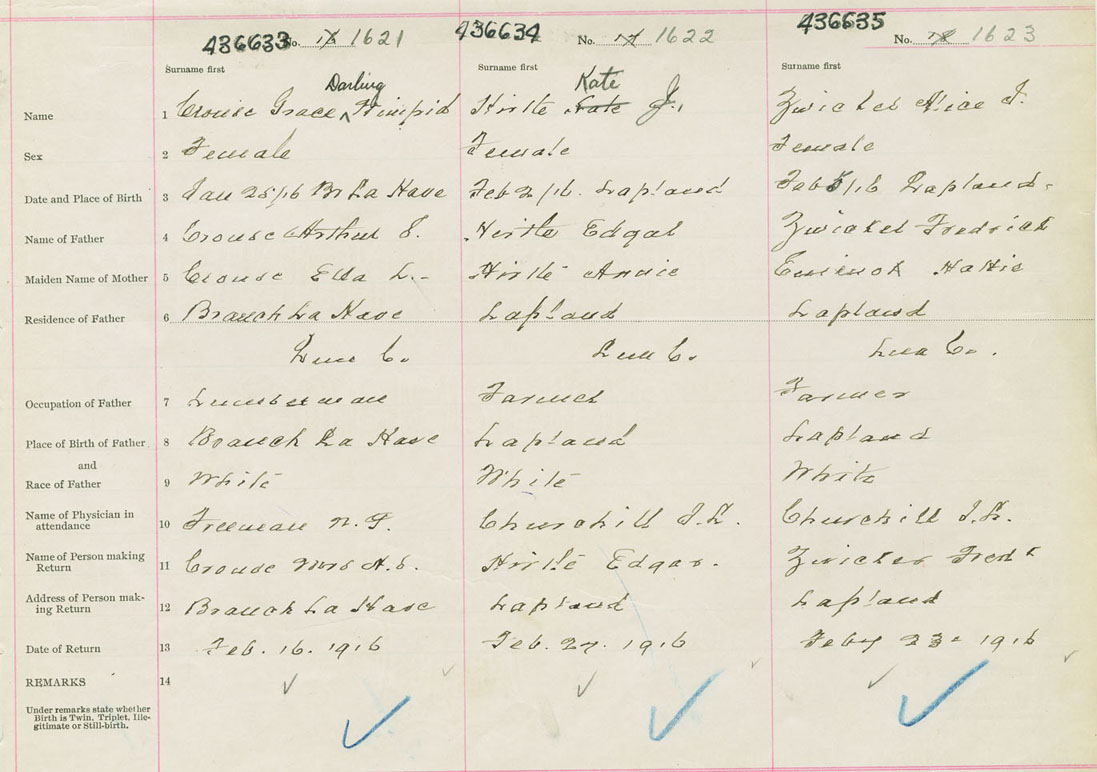 436633 No. 1621 436634 No. 1622 436635 No. 1623
Surname first Surname first Surname first
Darling Kate
Name 1 Crouse Grace Hirtle Kate J. Zwicker Alice J.
Sex 2 Female Female Female
Date and Place of Birth 3 Jan 25/16 Br La Have Feb 2/16. Lapland Feb 5/16 Lapland.
Name of Father 4 Crouse Arthur S. Hirtle Edgar Zwicker Fredrick
Maiden Name of Mother 5 Crouse Ella L. Hirtle Annie Hattie
Residence of Father 6 Branch La Have Lapland Lapland
Lun C. Lun C. Lun Co.
Occupation of Father 7 Lumberman Farmer Farmer
Place of Birth of Father 8 Branch La Have Lapland Lapland
and
Race of Father 9 White White White
Name of Physician in
attendance 10 Freeman Churchill Churchill
Name of Person making
Return 11 Crouse Mrs A.S. Hirtle Edgar. Zwicker Fredk
Address of Person mak-
ing Return 12 Branch La Have Lapland Lapland
Date of Return 13 Feb. 16. 1916 Feb. 27. 1916 Feby 23d 1916
REMARKS 14
Under remarks state whether
Birth is Twin, Triplet, Ille-
gitimate or Still-birth.